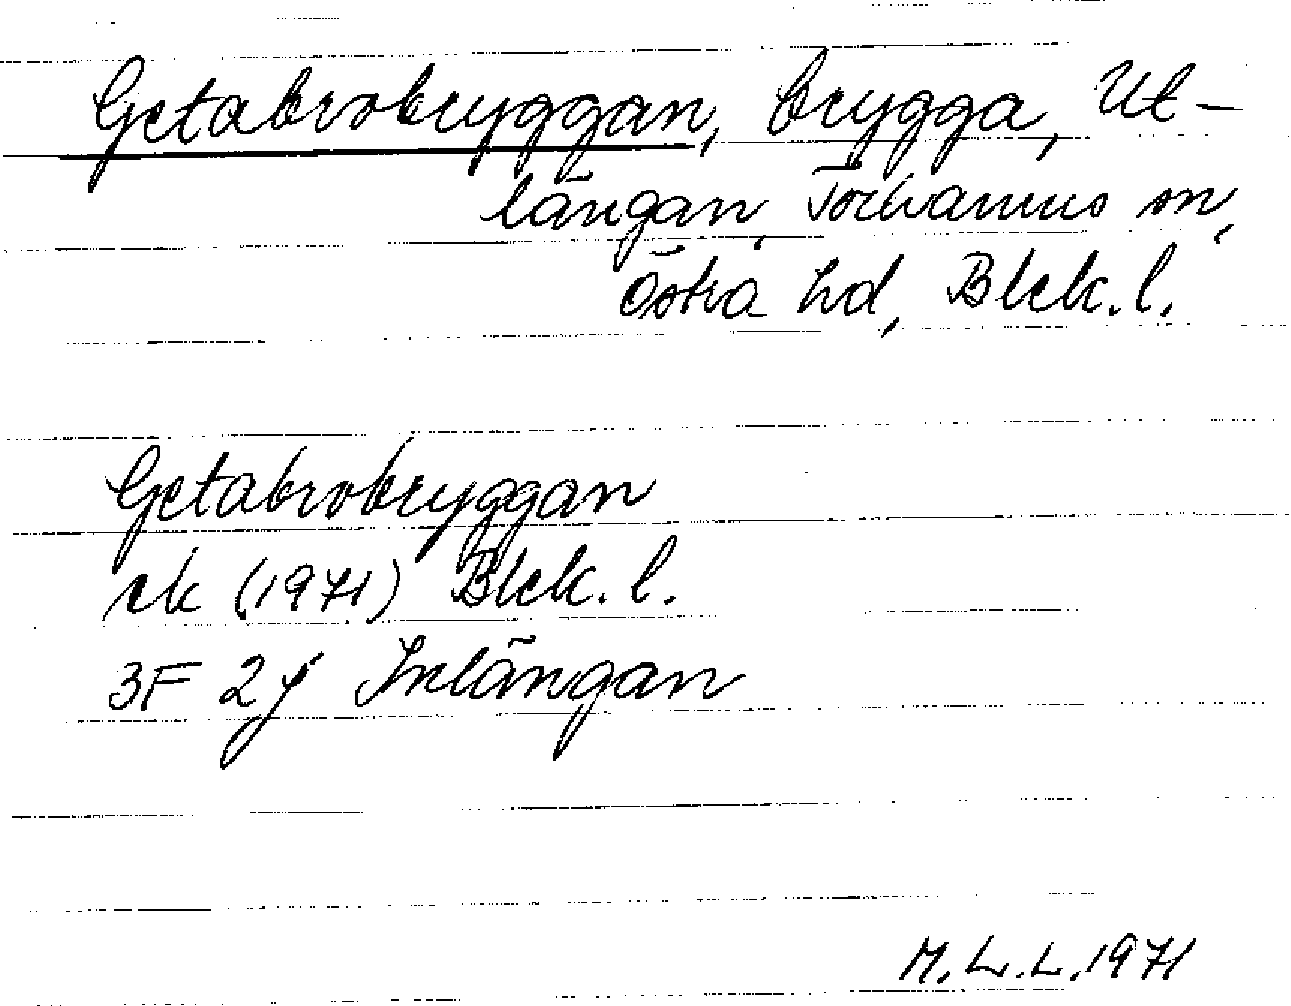 Getabrobryggan, brygga, Ut-
längan, Torhamns sn,
Östra hd, Blek. l.
Getabrobryggan
ek (1971) Blek. l.
3F 2j Inlängan
M.L.L. 1971